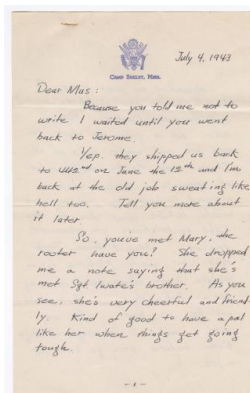 CAMP SHELBY, MISS.
July 4, 1943
Dear Mas:
Because you told me not to
write I waited until you went
back to Jerome.
Yep, they shipped us back
to 442nd on June the 12th and I'm
back at the old job sweating like
hell too. Tell you more about
it later
So, you've met Mary, the
rooter have you? She dropped
me a note saying that she's
met Sgt Iwate's brother. As you
see, she's very cheerful and friend
ly. Kind of good to have a pal
like her when things get going
tough.
-1-